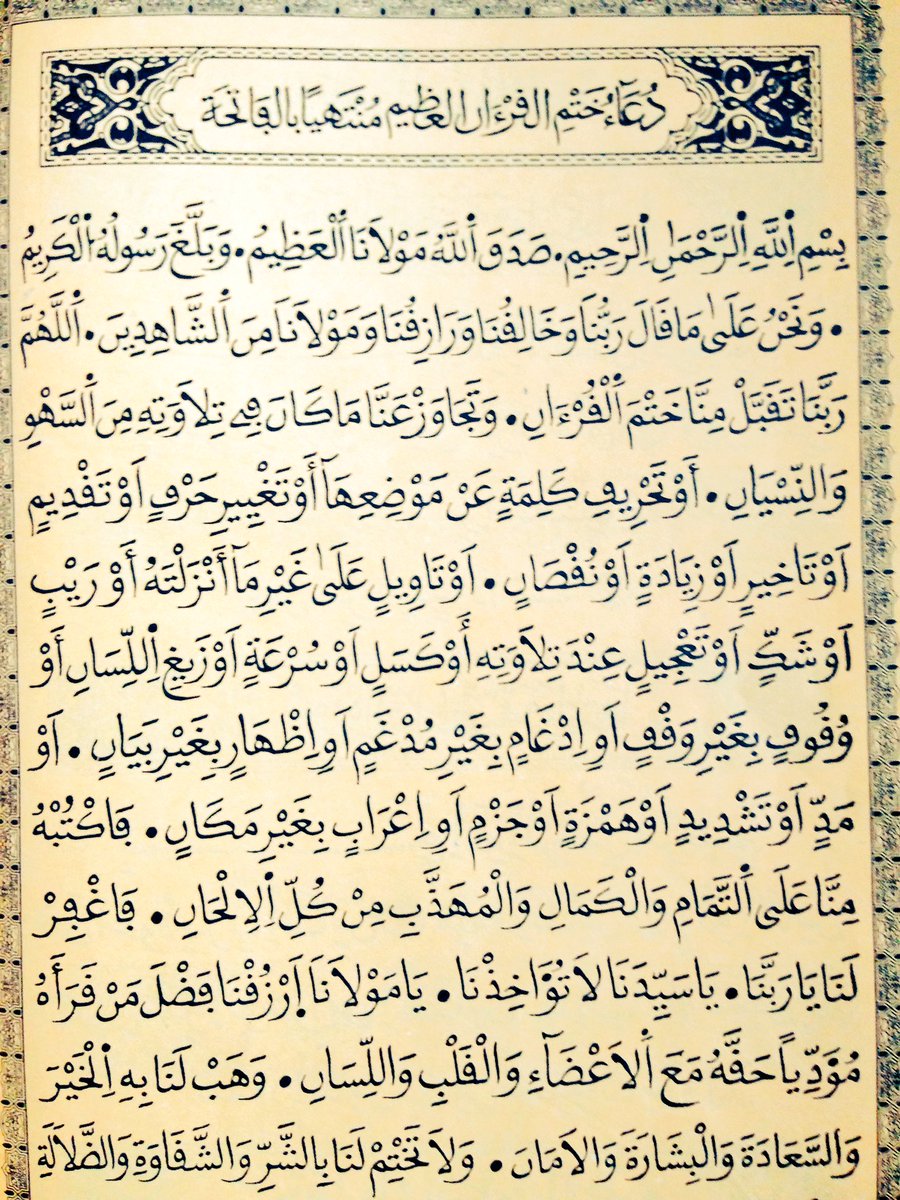 دُعَآءُ خَتْمِ الْقُرْءَانِ الْعَظِيمِ مُنْتَهِيًا بِالْفَاتِحَةِ
بِسْمِ اِ۬للَّهِ اِ۬لرَّحْمَٰنِ اِ۬لرَّحِيمِ. صَدَقَ اَ۬للَّهُ مَوْلَانَا اَ۬لْعَظِيمُ. وَبَلَّغَ رَسُولُهُ اُ۬لْكَرِيمُ
. وَنَحْنُ عَلَىٰ مَا قَالَ رَبُّنَا وَخَالِقُنَا وَرَازِقُنَا وَمَوْلَانَا مِنَ اَ۬لشَّاهِدِينَ. اَ۬للَّهُمَّ
رَبَّنَا تَقَبَّلْ مِنَّا خَتْمَ اَ۬لْقُرْءَانِ. وَتَجَاوَزْ عَنَّا مَا كَانَ فِے تِلَاوَتِهِ مِنَ اَ۬لسَّهْوِ
وَالنِّسْيَانِ. أَوْ تَحْرِيفِ كَلِمَةٍ عَنْ مَوْضِعِهَآ أَوْ تَغْيِيرِ حَرْفٍ اَوْ تَقْدِيمٍ
اَوْ تَاخِيرٍ اَوْ زِيَادَةٍ اَوْ نُقْصَانٍ. اَوْ تَاوِيلٍ عَلَىٰ غَيْرِ مَآ أَنْزَلْتَهُ أَوْ رَيْبٍ
اَوْ شَكٍّ اَوْ تَعْجِيلٍ عِنْدَ تِلَاوَتِهِ أَوْ كَسَلٍ اَوْ سُرْعَةٍ اَوْ زَيْغِ اِ۬للِّسَانِ أَوْ
وُقُوفٍ بِغَيْرِ وَقْفٍ اَوِ اِدْغَامٍ بِغَيْرِ مُدْغَمٍ اَوِ اِظْهَارٍ بِغَيْرِ بَيَانٍ. اَوْ
مَدٍّ اَوْ تَشْدِيدٍ اَوْ هَمْزَةٍ اَوْ جَزْمٍ اَوِ اِعْرَابٍ بِغَيْرِ مَكَانٍ. فَاكْتُبْهُ
مِنَّا عَلَى اَ۬لتَّمَامِ وَالْكَمَالِ وَالْمُهَذَّبِ مِنْ كُلِّ اِ۬لِالْحَانِ. فَاغْفِرْ
لَنَا يَا رَبَّنَا. يَا سَيِّدَنَا لَا تُؤَاخِذْنَا. يَا مَوْلَانَا اَ۟رْزُقْنَا فَضْلَ مَنْ قَرَأَهُ
مُؤَدِّياً حَقَّهُ مَعَ اَ۬لَاعْضَآءِ وَالْقَلْبِ وَاللِّسَانِ. وَهَبْ لَنَا بِهِ اِ۬لْخَيْرَ
وَالسَّعَادَةَ وَالْبِشَارَةَ وَالَامَانَ. وَلَا تَخْتِمْ لَنَا بِالشَّرِّ وَالشَّقَاوَةِ وَالضَّلَالَةِ